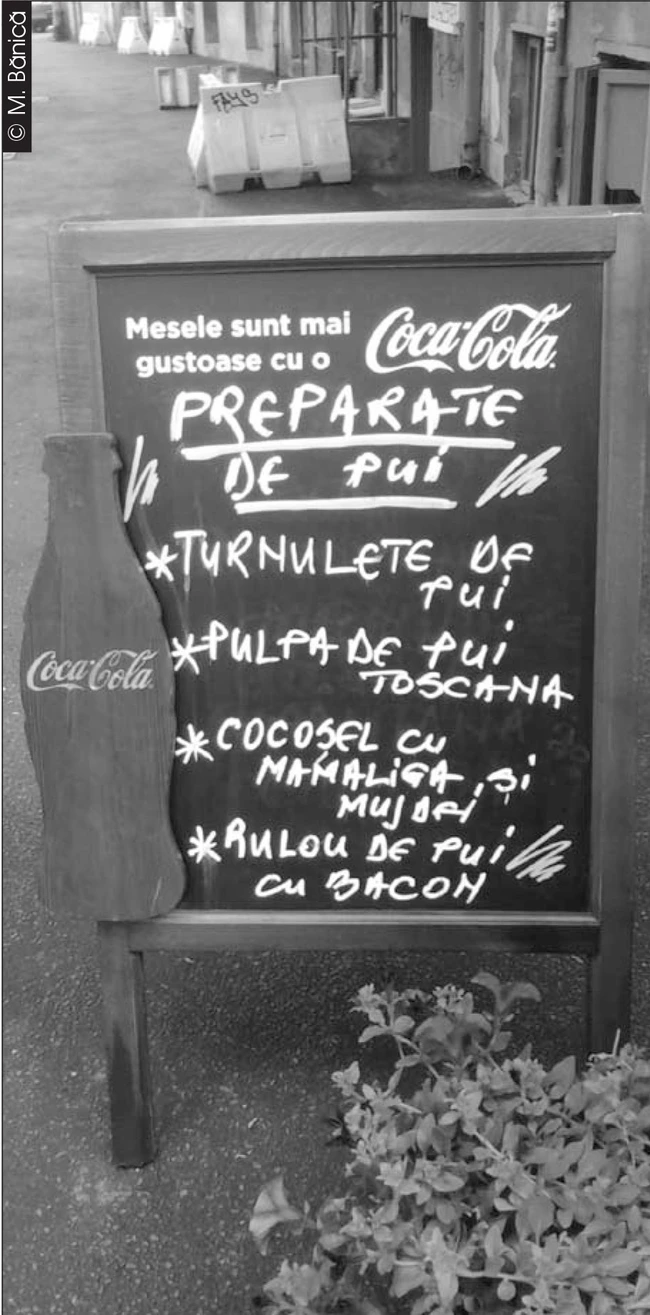 © M. Bănică
FAYS
Mesele sunt mai
gustoase cu o
Coca-Cola
PREPARATE
DE PUI
*TURNULETE DE
PUI
*PULPA DE PUI
TOSCANA
*COCOȘEL CU
MAMALIGA ȘI
MUJDEI
*RULOU DE PUI
CU BACON
Coca-Cola